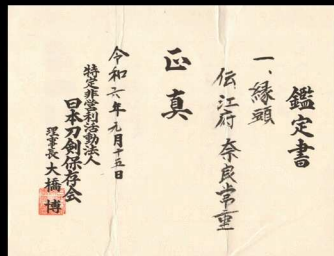 鑑定書
一、縁頭
伝 江府 奈良常重
正真
令和六年元月十五日
特定非営利活動法人
日本刀剣保存会
理事長 大橋 博